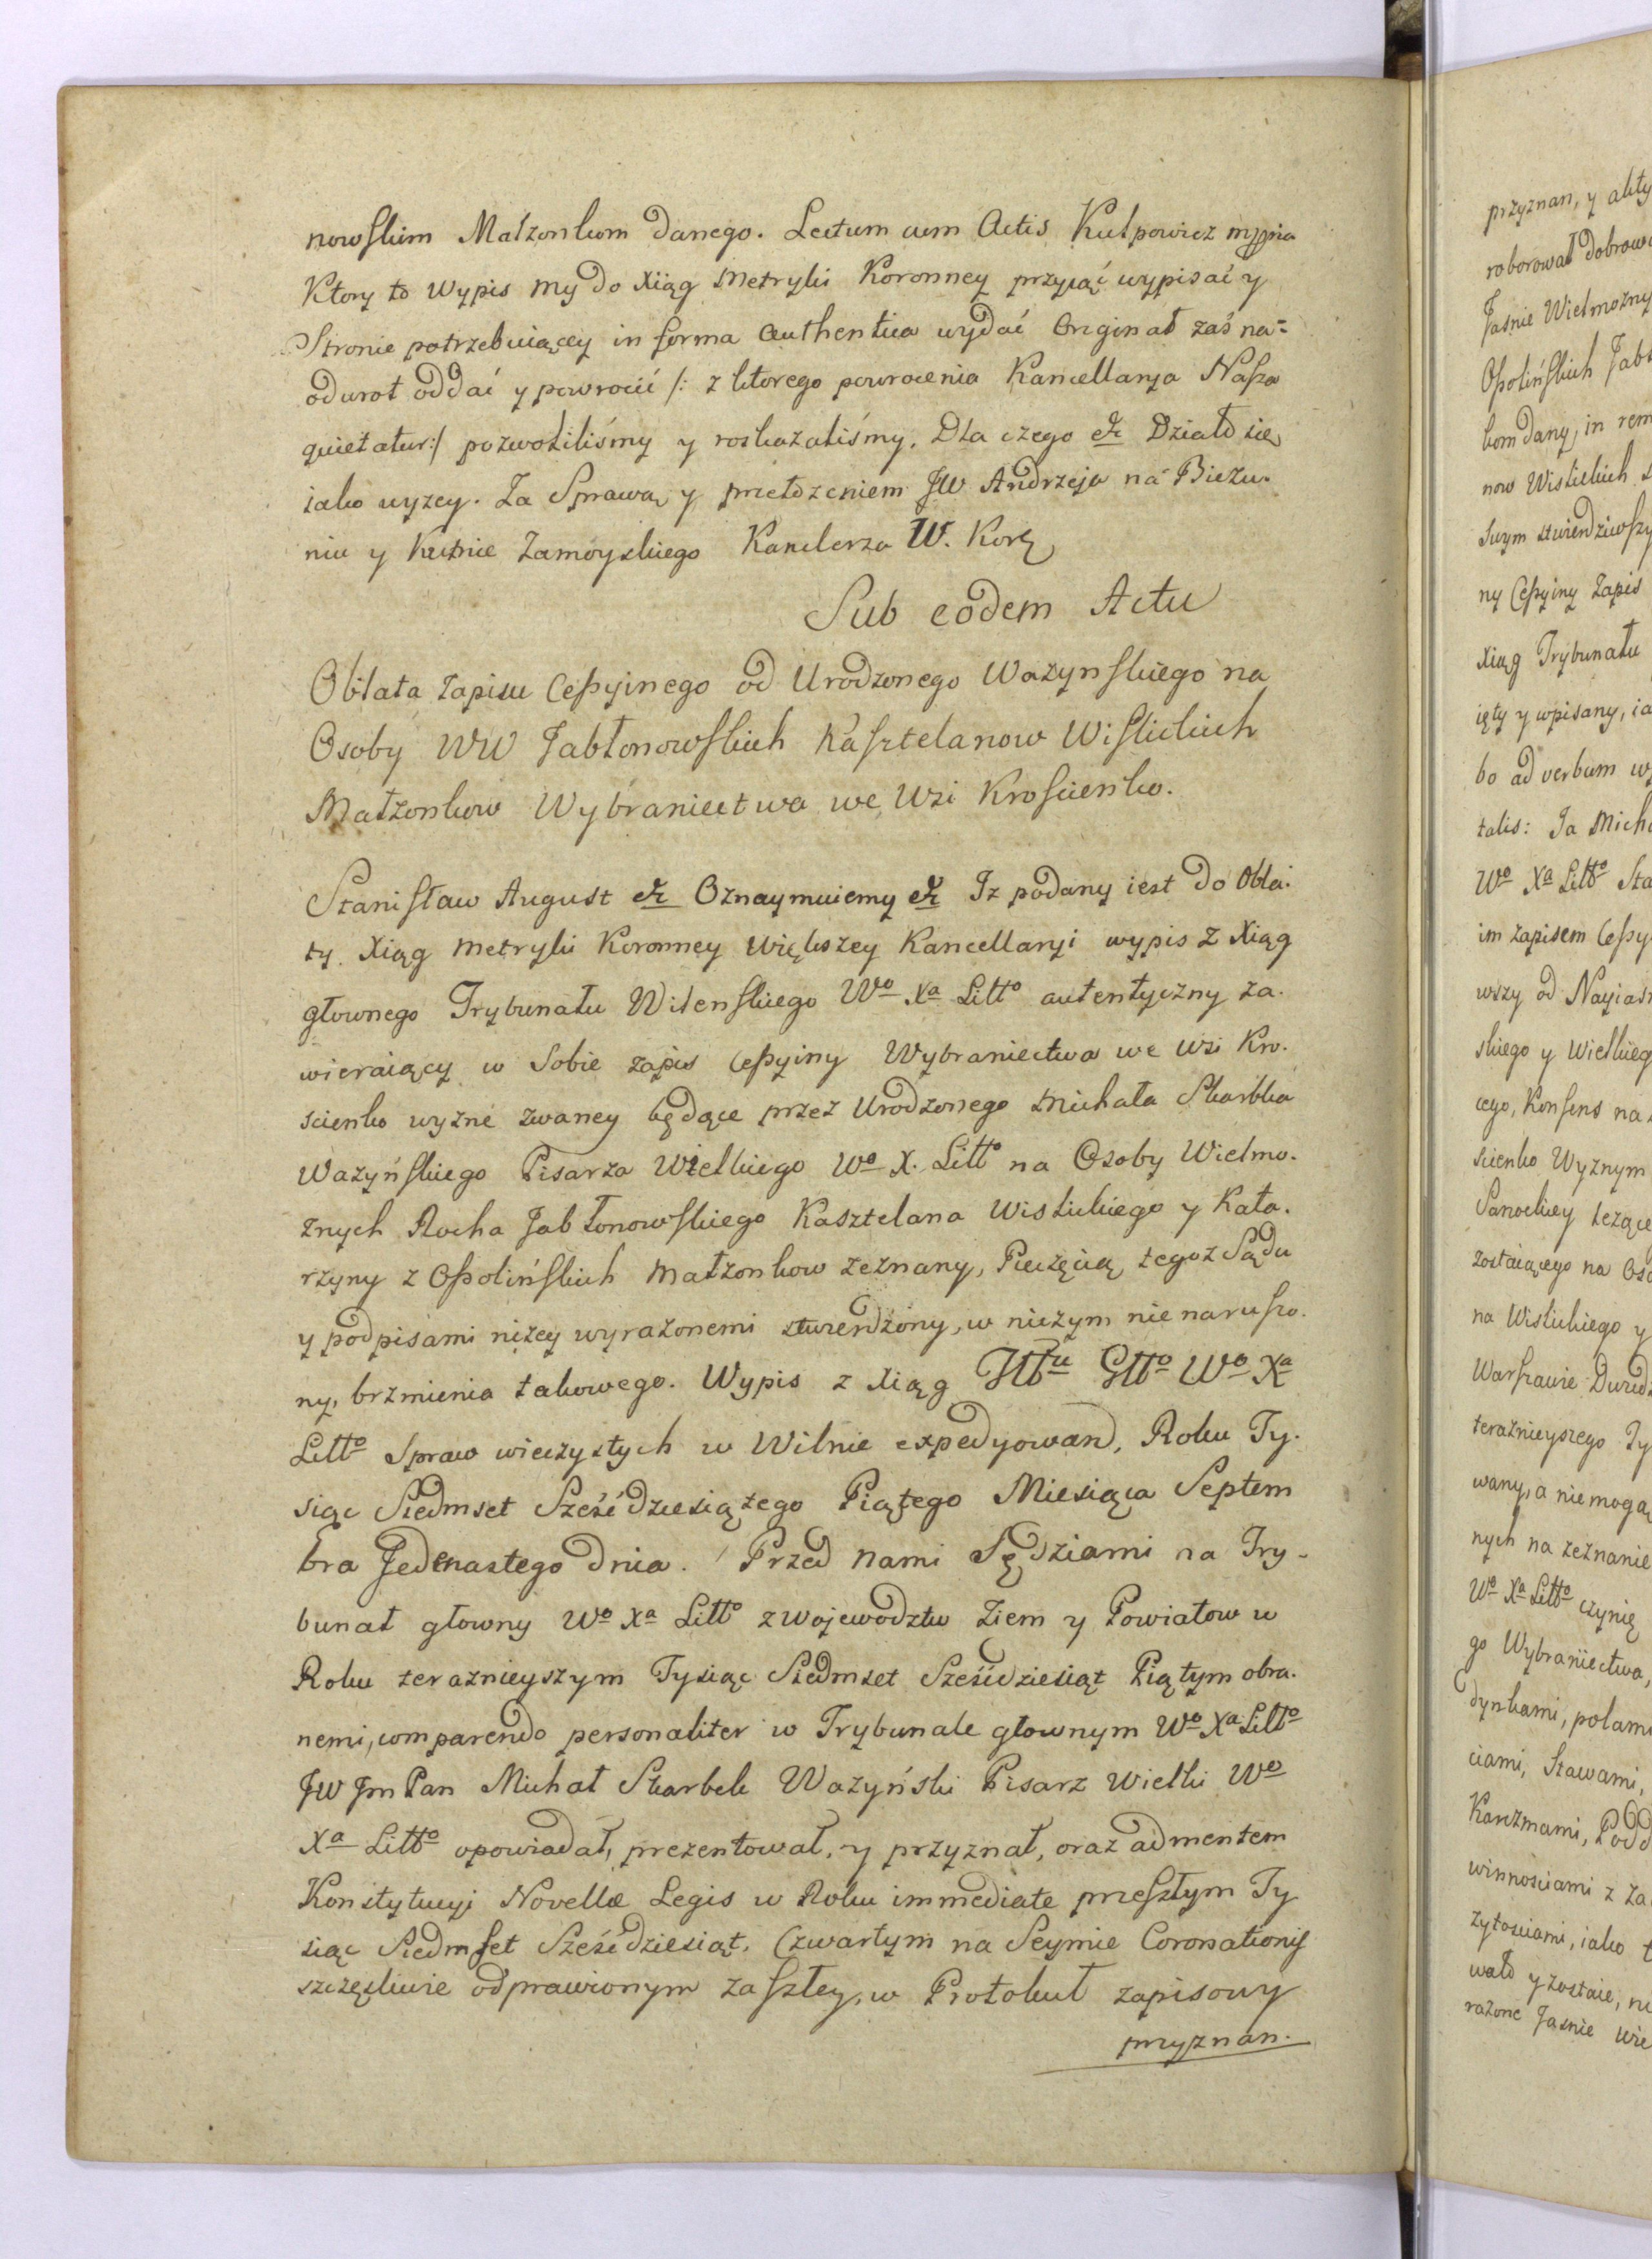 nowskim Małzonkom danego. Lectum cum Actis Kulpowicz mppia
Ktory to wypis my do Xiąg Metryki Koronney przyiąć wypisać y
Stronie potrzebuiącey in forma Authentica wydać Originał zaś na=
odwrot oddać y powrocić /: z ktorego powrocenia Kancellarya Nasza
quietatur :/ pozwoliliśmy y roskazaliśmy. Dla czego etc Działo się
iako wyzey. Za Sprawą y przełozeniem JW Andrzeja na Biezu.
niu y Kutnie Zamoyskiego Kanclerza W. Korg
Sub eodem Actu
Oblata zapisu Cessyinego od Urodzonego Wazynskiego na
Osoby WW Jabłonowskich Kasztelanow Wislickich
Małzonkow Wybraniectwa we Wsi Kroscienko.
Stanisław August etc Oznaymuiemy etc Iz podany iest do Obla.
ty Xiąg Metryki Koronney większey Kancellaryi wypis z Xiąg
głownego Trybunału Wilenskiego Wo Xa Litto autentyczny za.
wieraiący w Sobie zapis Cessyiny Wybraniectwa we Wsi Kro.
scienko wyzne zwaney będące przez Urodzonego Michała Skarbka
Wazyńskiego Pisarza Wielkiego Wo X. Litto na Osoby Wielmo.
znych Rocha Jabłonowskiego Kasztelana Wislickiego y Kata.
rzyny z Ossolińskich Małzonkow zeznany, Pieczęcią tegoz Sądu
y podpisami nizey wyrazonemi ztwierdzony, w niczym nie narusza.
ny, brzmienia takowego. Wypis z Xiąg Wo Xa
Litto Spraw wieczystych w Wilnie expedyowan, Roku Ty.
siąc Siedmset Sześćdziesiątego Piątego Miesiąca Septem
bra Jedenastego dnia. Przed nami Sędziami na Try-
bunał głowny Wo Xa Litto z Wojewodztw Ziem y Powiatow w
Roku teraznieyszym Tysiąc Siedmset Sześćdziesiąt Piątym obra.
nemi, comparendo personaliter w Trybunale głownym Wo Xa Litto
JW Jm Pan Michał Skarbek Wazyński Pisarz Wielki Wo
Xa Litto opowiadał, prezentował, y przyznał, oraz ad mentem
Konstytucyi Novellæ Legis w Roku immediate przeszłym Ty
siąc Siedmset Sześćdziesiąt Czwartym na Seymie Coronationis
szczęsliwie odprawionym zaszłey, w Protokuł zapisowy
przyznan.
przyznan, y akty
roborował dobrow
Jasnie Wielmozny
Ossolińskich Jab
kom dany, in rem
now Wislickich
swym stwierdziwszy
ny Cessyiny Zapis
Xiąg Trybunału
ięty y wpisany, ia
bo ad verbum w
talis: Ja Mich
Wo Xa Litto Sta
im zapisem Cessy
wszy od Nayias
skiego y Wielkieg
cego, Konsens na
scienko Wyznym
Sanockiey lezące
zostaiącego na Oso
na Wislickiego y
Warszawie
teraznieyszego Ty
wany, a niemogą
nych na zeznanie
Wo Xa Litto czynię
go Wybraniectwa,
dynkami, polami
ciami, Stawami,
Karczmami, Podd
winnosciami z
zytosciami, iako t
wało y zostaie,
razone Jasnie Wie